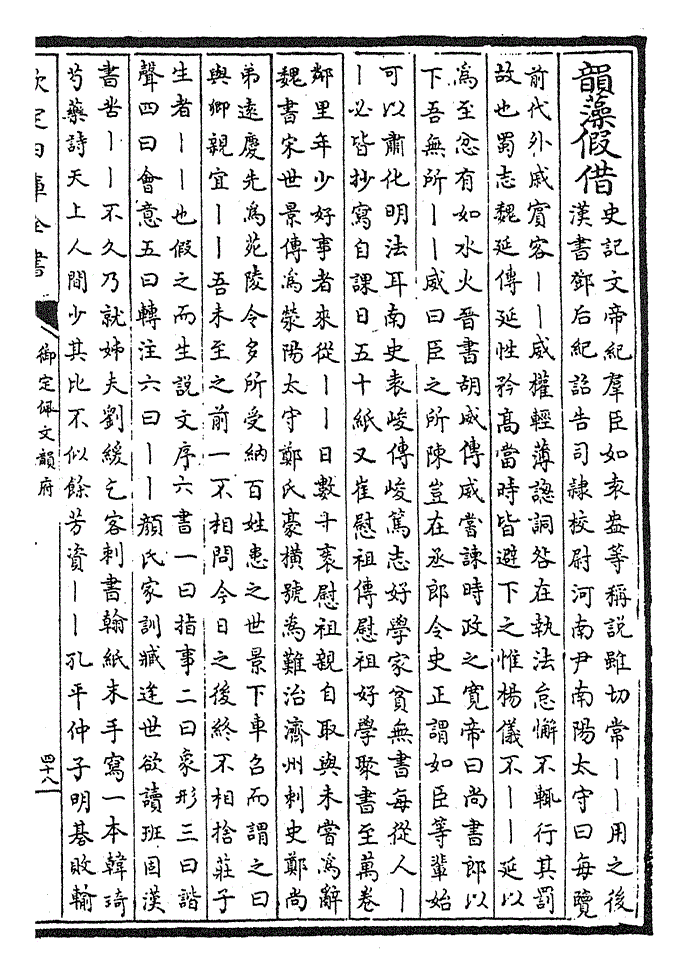 韻藻假借
史記文帝紀羣臣如袁盎等稱說雖切常丨丨用之後
漢書鄧后紀詔告司隷校尉河南尹南陽太守曰每覽
前代外戚賓客丨丨威權輕薄諰詷咎在執法怠懈不輒行其罰
故也蜀志魏延傳延性矜髙當時皆避下之惟楊儀不丨丨延以
爲至忿有如水火晉書胡威傳威嘗諫時政之寛帝曰尚書郎以
下吾無所丨丨威曰臣之所陳豈在丞郎令史正謂如臣等輩始
可以肅化明法耳南史袁峻傳峻篤志好學家貧無書每從人丨
丨必皆抄寫自課日五十紙又崔慰祖傳慰祖好學聚書至萬卷
鄰里年少好事者來從丨丨日數十袠慰祖親自取與未嘗爲辭
魏書宋世景傳爲滎陽太守鄭氏豪橫號爲難治濟州刺史鄭尚
弟逺慶先爲苑陵令多所受納百姓患之世景下車召而謂之曰
與卿親宜丨丨吾未至之前一不相問今日之後終不相捨莊子
生者丨丨也假之而生説文序六書一曰指事二曰象形三曰諧
聲四曰會意五曰轉注六曰丨丨顔氏家訓臧逢世欲讀班固漢
書苦丨丨不久乃就姊夫劉緩乞客刺書翰紙末手寫一本韓琦
芍藥詩天上人間少其比不似餘芳資丨丨孔平仲子明碁敗輸
欽定四庫全書
御定佩文韻府
四十八